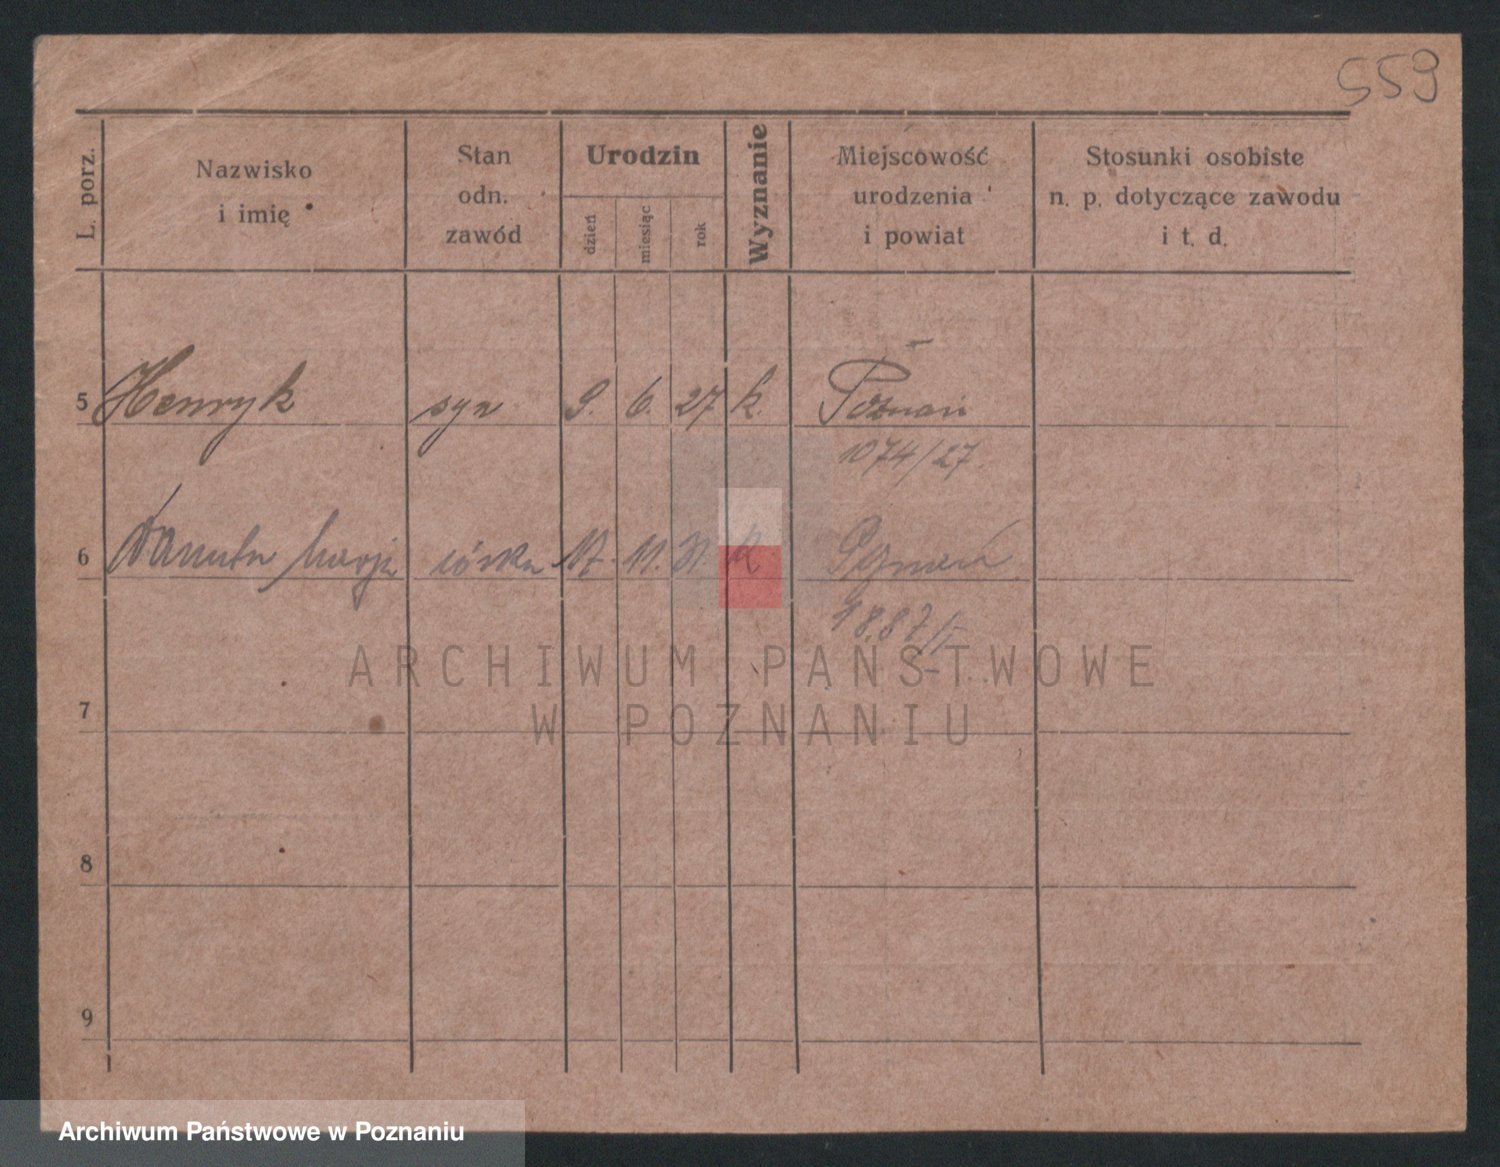 559
L. porz.
Nazwisko
i imię
Stan
odn.
zawód
Urodzin
dzień
miesiąc
rok
Wyznanie
Miejscowość
urodzenia
i powiat
Stosunki osobiste
n. p. dotyczące zawodu
i t. d.
5 Henryk syn 9. 6. 27 k. Poznań
1074/27
6 Danuta córka 17. 11. 31 k
7
8
9
ARCHIWUM PAŃSTWOWE
W POZNANIU
Archiwum Państwowe w Poznaniu